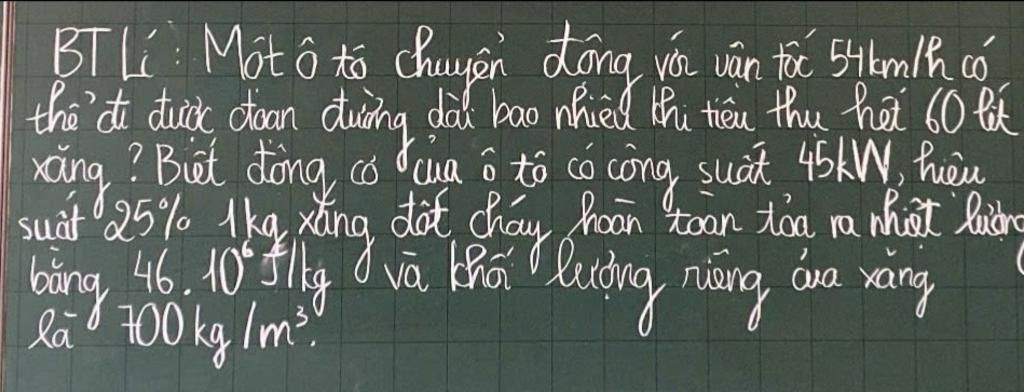 BT Lí : Một ô tô chuyển động với vận tốc 54km/h có
thể đi được đoạn đường dài bao nhiêu khi tiêu thụ hết 60 lít
xăng ? Biết động cơ của ô tô có công suất 45kW, hiệu
suất 25% 1kg xăng đốt cháy hoàn toàn tỏa ra nhiệt lượng
bằng 46.10⁶ J/kg và khối lượng riêng của xăng
là 700kg/m³.